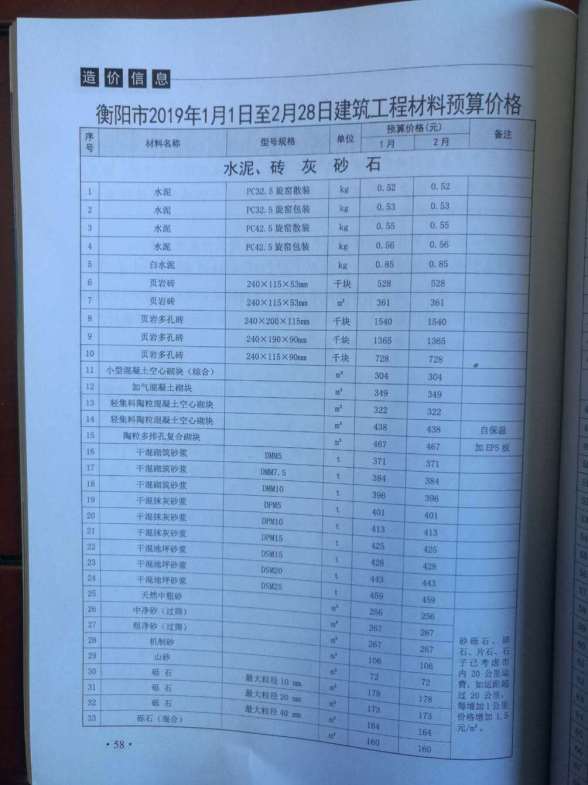 造价信息
衡阳市2019年1月1日至2月28日建筑工程材料预算价格
序号 材料名称 型号规格 单位 预算价格(元) 备注
1月 2月
水泥、砖 灰 砂 石
1 水泥 PC32.5旋窑散装 kg 0.52 0.52
2 水泥 PC32.5旋窑包装 kg 0.53 0.53
3 水泥 PC42.5旋窑散装 kg 0.55 0.55
4 水泥 PC42.5旋窑包装 kg 0.56 0.56
5 白水泥 kg 0.85 0.85
6 页岩砖 240×115×53mm 千块 528 528
7 页岩砖 240×115×53mm m³ 361 361
8 页岩多孔砖 240×200×115mm 千块 1540 1540
9 页岩多孔砖 240×190×90mm 千块 1365 1365
10 页岩多孔砖 240×115×90mm 千块 728 728
11 小型混凝土空心砌块(综合) m³ 304 304
12 加气混凝土砌块 m³ 349 349
13 轻集料陶粒混凝土空心砌块 m³ 322 322
14 轻集料陶粒混凝土空心砌块 m³ 438 438 自保温
15 陶粒多排孔复合砌块 m³ 467 467 加EPS板
16 干混砌筑砂浆 DMM5 t 371 371
17 干混砌筑砂浆 DMM7.5 t 384 384
18 干混砌筑砂浆 DMM10 t 396 396
19 干混抹灰砂浆 DPM5 t 401 401
20 干混抹灰砂浆 DPM10 t 413 413
21 干混抹灰砂浆 DPM15 t 425 425
22 干混地坪砂浆 DSM15 t 428 428
23 干混地坪砂浆 DSM20 t 443 443
24 干混地坪砂浆 DSM25 t 459 459
25 天然中粗砂 m³ 256 256
26 中净砂(过筛) m³ 267 267
27 粗净砂(过筛) m³ 267 267
28 机制砂 m³ 106 106
29 山砂 m³ 72 72
30 砾石 最大粒径10 mm m³ 178 178
31 砾石 最大粒径20 mm m³ 173 173
32 砾石 最大粒径40 mm m³ 164 164
33 砾石(混合) m³ 160 160
砂砾石、碎
石、片石、石
子已考虑市
内20公里运
费,如运距超
过20公里,
每增加1公里
价格增加1.5
元/m³。
·58·